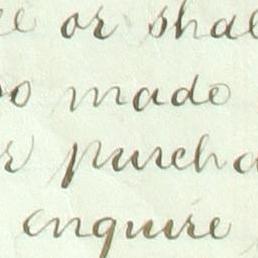 or shal
made
purcha
enquire